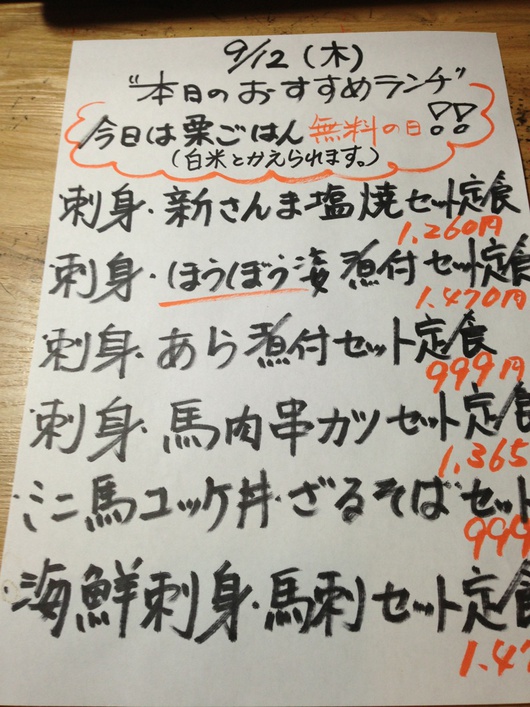 9/12(木)
"本日のおすすめランチ"
今日は栗ごはん無料の日!!
(白米とかえられます。)
刺身・新さんま塩焼セット定食
1,260円
刺身・ほうぼう姿煮付セット定食
1.470円
刺身・あら煮付セット定食
999円
刺身・馬肉串カツセット定食
1.365
ミニ馬ユッケ丼・ざるそばセット
999
海鮮刺身・馬刺セット定食
1.47